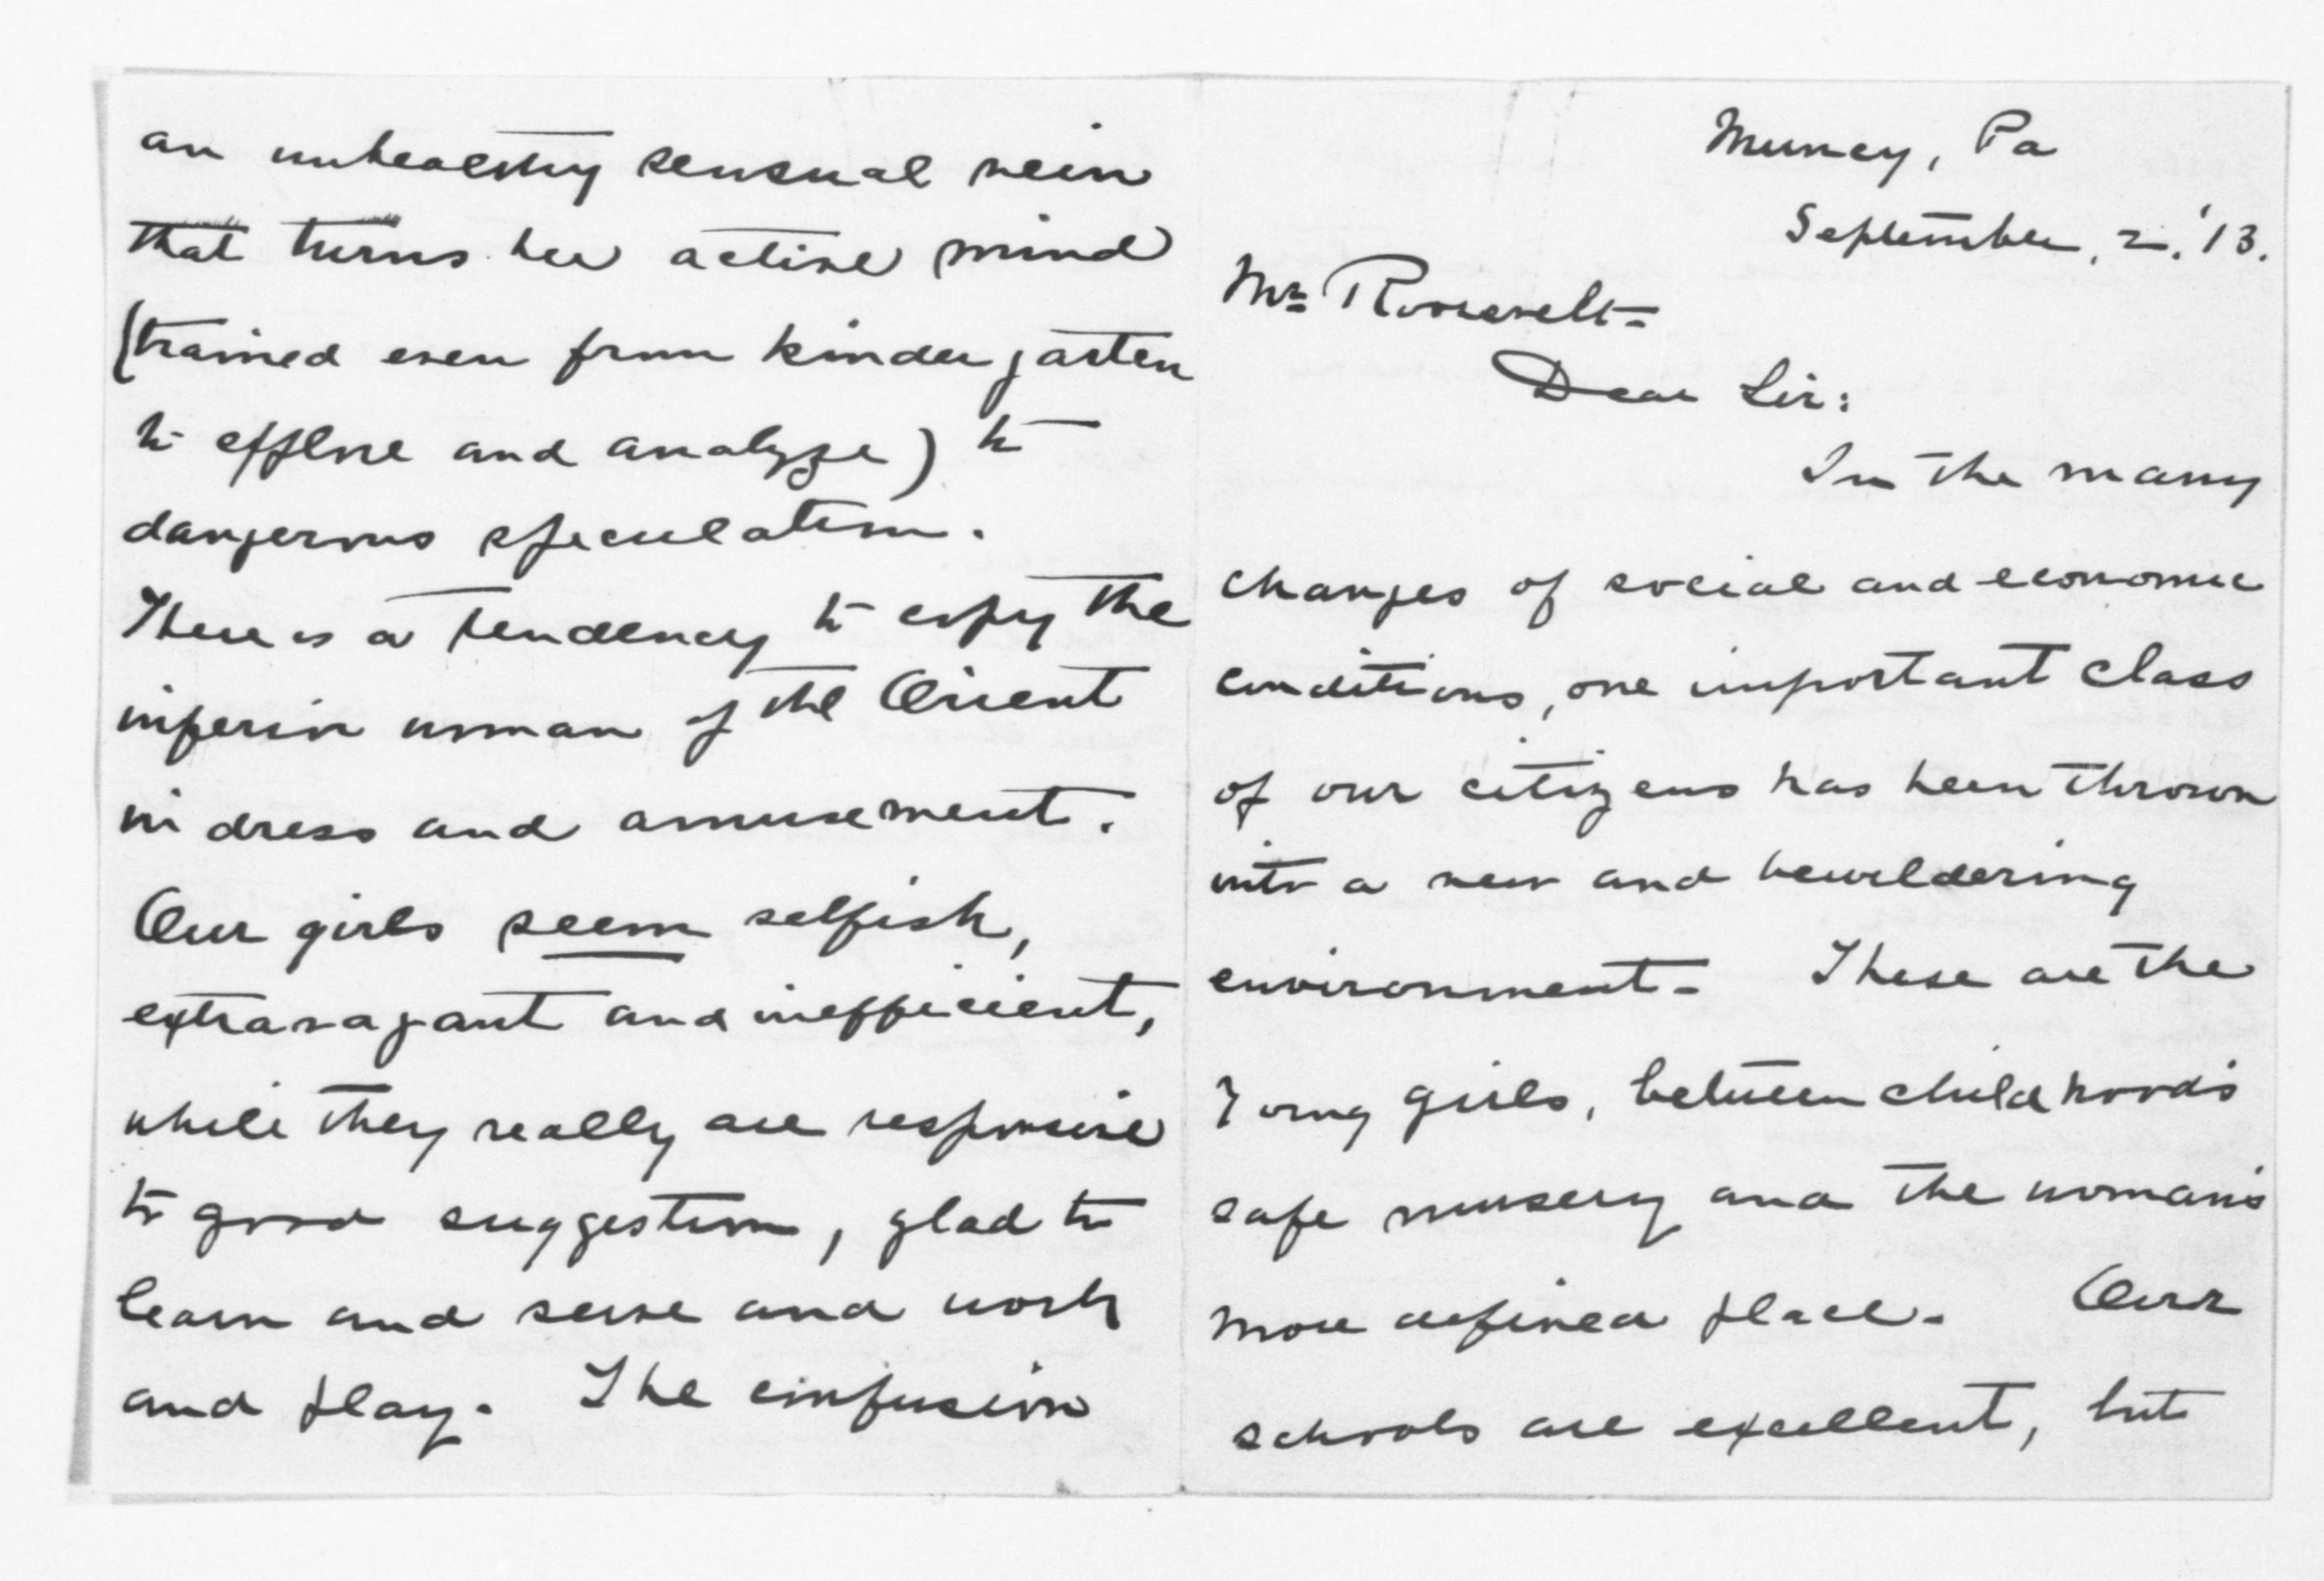 Muncy, Pa
September, 2, '13.
Mr. Roosevelt-
Dear Sir:
In the many
changes of social and economic
conditions, one important class
of our citizens has been thrown
into a new and bewildering
environment- These are the
young girls, between childhood's
safe nursery and the woman's
more defined place. Our
schools are excellent, but
an unhealthy sensual vein
that turns her active mind
(trained even from kindergarten
to explore and analyze) to
dangerous speculation.
There is a tendency to copy the
inferior woman of the Orient
in dress and amusement.
Our girls seem selfish,
extravagant and inefficient,
while they really are responsive
to good suggestion, glad to
learn and serve and work
and play. The confusion